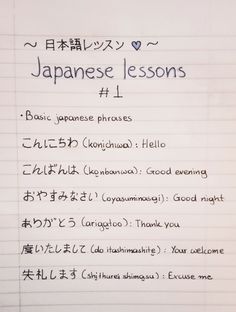 ～ 日本語レッスン ♡ ～
Japanese lessons
#1
・Basic japanese phrases
こんにちわ (konichiwa) : Hello
こんばんは (konbanwa) : Good evening
おやすみなさい (oyasuminasai) : Good night
ありがとう (arigatoo) : Thank you
度いたしまして (do itashimashite) : Your welcome
失礼します (shitsurei shimasu) : Excuse me